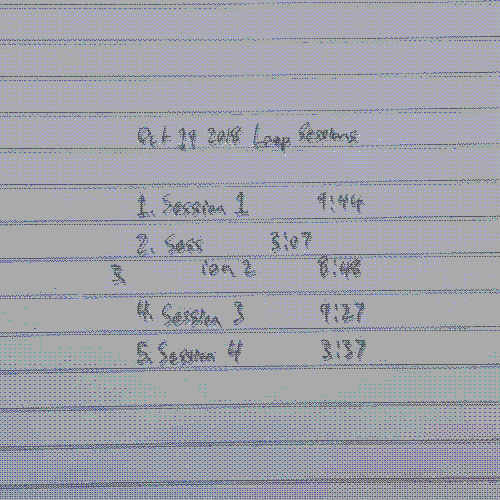 Oct 29 2018 Loop Sessions
1. Session 1 9:44
2. Sess 3:07
3. ion 2 8:48
4. Session 3 9:27
5. Session 4 3:37